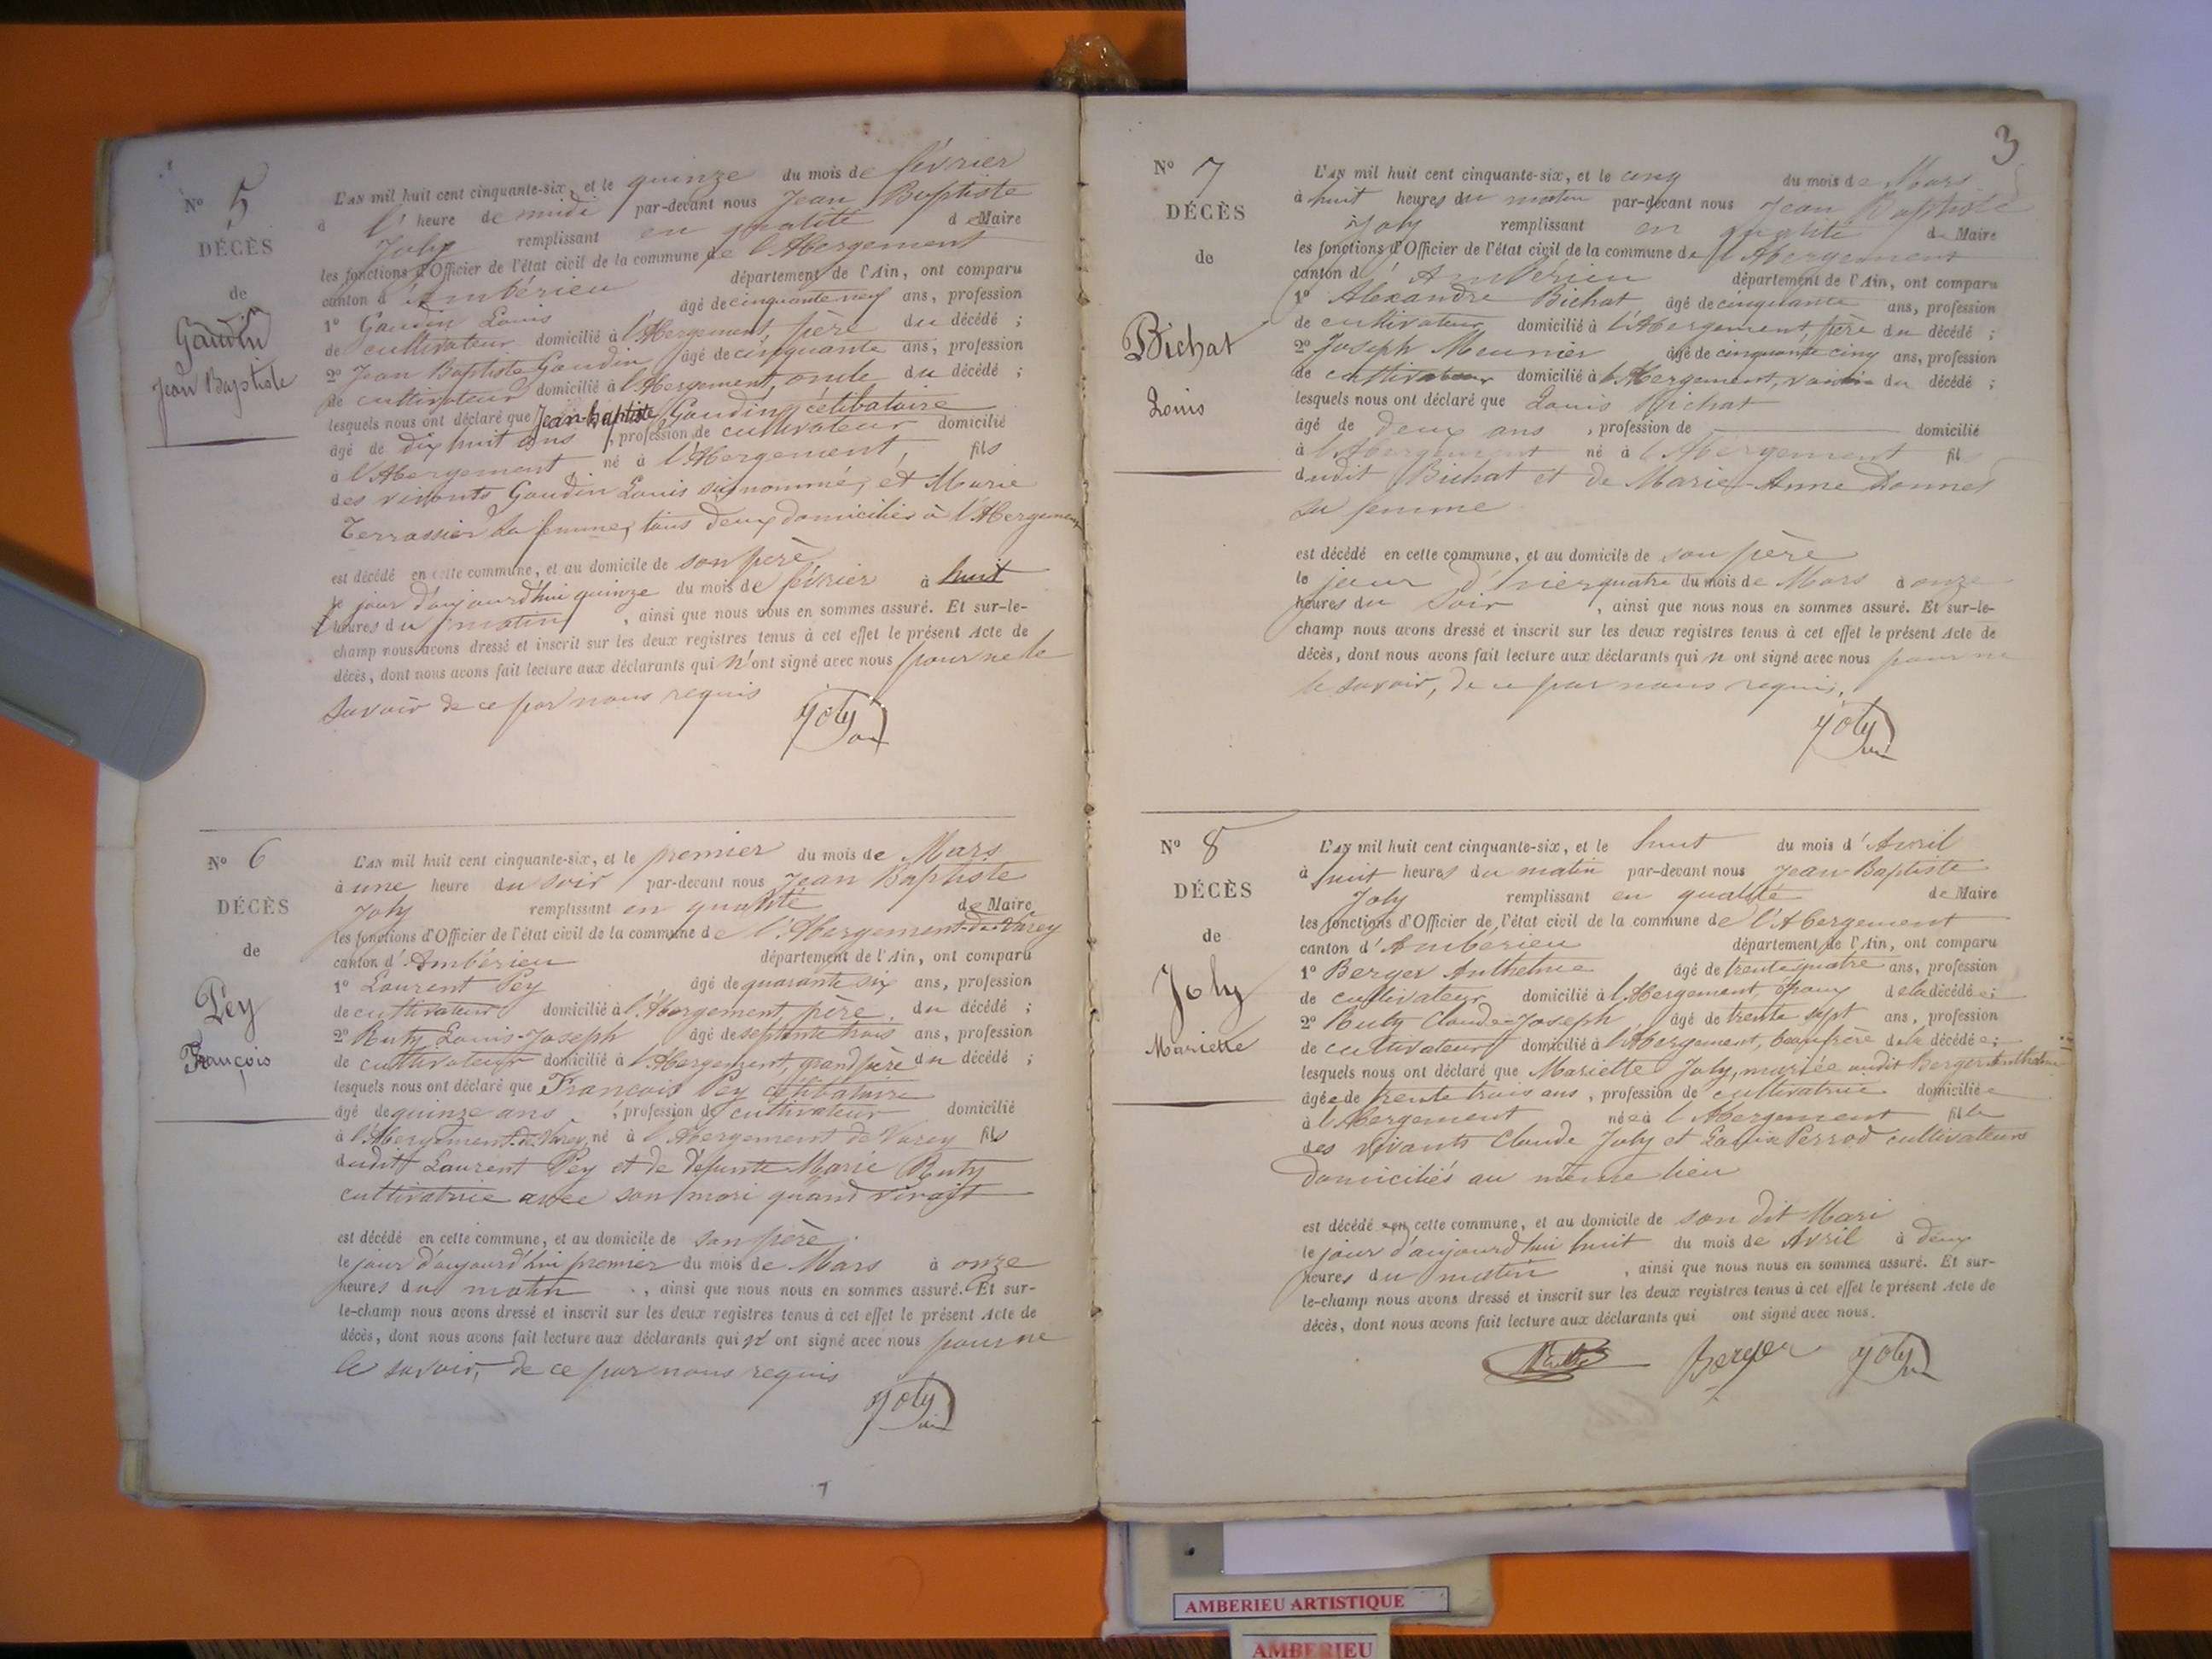 Nº 5
DÉCÈS
de
Gaudin
Jean Baptiste
L'AN mil huit cent cinquante-six, et le quinze du mois de février
à l' heure de midi par-devant nous Jean Baptiste
Joly remplissant en qualité de Maire
les fonctions d'Officier de l'état civil de la commune de l'Abergement
canton d'Ambérieu département de l'Ain, ont comparu
1º Gaudin Louis âgé de cinquante neuf ans, profession
de cultivateur domicilié à l'Abergement, père du décédé ;
2º Jean Baptiste Gaudin âgé de cinquante ans, profession
de cultivateur domicilié à l'Abergement, oncle du décédé ;
lesquels nous ont déclaré que Jean-baptiste Gaudin, célibataire
âgé de dix huit ans, profession de cultivateur domicilié
à l'Abergement né à l'Abergement, fils
des vivants Gaudin Louis susnommé, et Marie
Terrassier sa femme, tous deux domiciliés à l'Abergement
est décédé en cette commune, et au domicile de son père
le jour d'aujourd'hui quinze du mois de février à huit
heures du matin, ainsi que nous nous en sommes assuré. Et sur-le-
champ nous avons dressé et inscrit sur les deux registres tenus à cet effet le présent Acte de
décès, dont nous avons fait lecture aux déclarants qui n'ont signé avec nous pour ne le
savoir de ce par nous requis
Joly
Nº 6
DÉCÈS
de
Pey
François
L'AN mil huit cent cinquante-six, et le premier du mois de Mars
à une heure du soir par-devant nous Jean Baptiste
Joly remplissant en qualité de Maire
les fonctions d'Officier de l'état civil de la commune de l'Abergement-de-Varey
canton d'Ambérieu département de l'Ain, ont comparu
1º Laurent Pey âgé de quarante six ans, profession
de cultivateur domicilié à l'Abergement, père du décédé ;
2º Ruty Louis-Joseph âgé de septante trois ans, profession
de cultivateur domicilié à l'Abergement, grand père du décédé ;
lesquels nous ont déclaré que François Pey célibataire
âgé de quinze ans, profession de cultivateur domicilié
à l'Abergement-de-Varey, né à l'Abergement de Varey fils
dudit Laurent Pey et de défunte Marie Ruty
cultivatrice avec son mari quand vivait
est décédé en cette commune, et au domicile de son père
le jour d'aujourd'hui premier du mois de Mars à onze
heures du matin, ainsi que nous nous en sommes assuré. Et sur-
le-champ nous avons dressé et inscrit sur les deux registres tenus à cet effet le présent Acte de
décès, dont nous avons fait lecture aux déclarants qui n'ont signé avec nous pour ne
le savoir, de ce par nous requis
Joly
3
Nº 7
DÉCÈS
de
Bichat
Louis
L'AN mil huit cent cinquante-six, et le cinq du mois de Mars
à huit heures du matin par-devant nous Jean Baptiste
Joly remplissant en qualité de Maire
les fonctions d'Officier de l'état civil de la commune de l'Abergement
canton d'Ambérieu département de l'Ain, ont comparu
1º Alexandre Bichat âgé de cinquante ans, profession
de cultivateur domicilié à l'Abergement, père du décédé ;
2º Joseph Meunier âgé de cinquante cinq ans, profession
de cultivateur domicilié à l'Abergement, voisin du décédé ;
lesquels nous ont déclaré que Louis Bichat
âgé de deux ans, profession de domicilié
à l'Abergement né à l'Abergement fils
dudit Bichat et de Marie-Anne
sa femme
est décédé en cette commune, et au domicile de son père
le jour d'hier quatre du mois de Mars à onze
heures du soir, ainsi que nous nous en sommes assuré. Et sur-le-
champ nous avons dressé et inscrit sur les deux registres tenus à cet effet le présent Acte de
décès, dont nous avons fait lecture aux déclarants qui n'ont signé avec nous pour ne
le savoir, de ce par nous requis.
Joly
Nº 8
DÉCÈS
de
Joly
Mariette
L'AN mil huit cent cinquante-six, et le huit du mois d'Avril
à huit heures du matin par-devant nous Jean Baptiste
Joly remplissant en qualité de Maire
les fonctions d'Officier de l'état civil de la commune de l'Abergement
canton d'Ambérieu département de l'Ain, ont comparu
1º Berger Anthelme âgé de trente quatre ans, profession
de cultivateur domicilié à l'Abergement, époux de la décédée ;
2º Ruty Claude-Joseph âgé de trente sept ans, profession
de cultivateur domicilié à l'Abergement, beau frère de la décédée ;
lesquels nous ont déclaré que Mariette Joly, mariée audit Berger Anthelme
âgée de trente trois ans, profession de cultivatrice domiciliée
à l'Abergement née à l'Abergement fille
des vivants Claude Joly et Perrod cultivateurs
domiciliés au même lieu
est décédé en cette commune, et au domicile de son dit Mari
le jour d'aujourd'hui huit du mois de Avril à deux
heures du matin, ainsi que nous nous en sommes assuré. Et sur-
le-champ nous avons dressé et inscrit sur les deux registres tenus à cet effet le présent Acte de
décès, dont nous avons fait lecture aux déclarants qui ont signé avec nous.
Ruty Berger Joly
AMBERIEU ARTISTIQUE
AMBERIEU